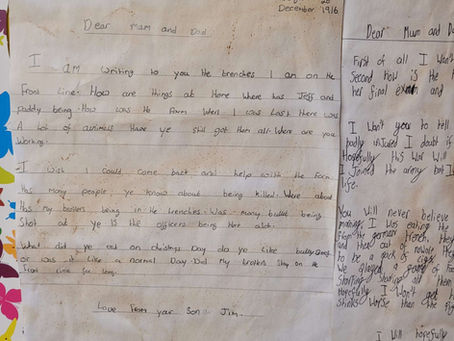 December 1916
Dear Mam and Dad
I AM writing to you He trenches I am on He
Front Line. How are things at Home where has Jeff and
paddy being. How was He Farm when I was Last there was
A lot of animals Have ye still got them all. Where are you
working.
I wish I could come back and help with the Farm
Has many people ye know about being killed. Where about
Has my brothers being in He trenches. Was many bullet being
Shot at ye IS the officers being Her alot.
What did ye eat on christmas Day do ye Like
or was it Like a normal Day. Did My brothers Stay on He
Front Line for long.
Love From your Son Jim.
Dear Mum and D
First of all I Won't
Second how is the
her final exam and
I Won't you to tell
badly injured I doubt if
Hopefully this war will
I joined the army but I
life.
You will never believe
morning. I was eating the
the german trench, they
and they out of nowhere
to be a pack of cigs
We played a game of Fo
Starting all them
Hopefully I Won't get
Stinks worse than the
I Will hopefully